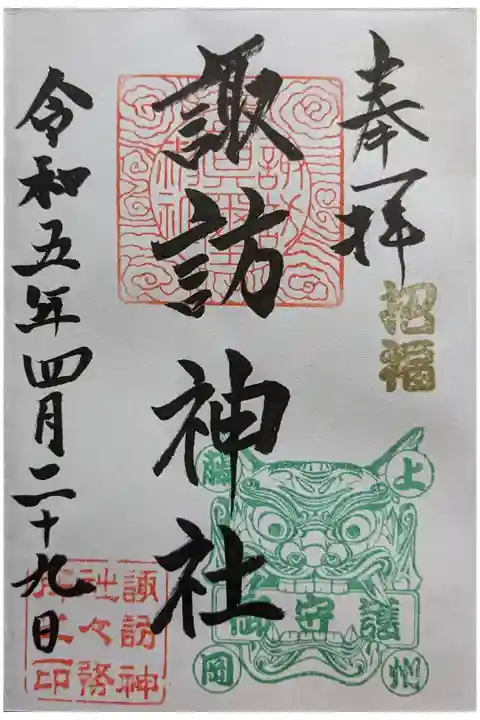 奉拝
招福
諏訪神社
令和五年四月二十九日
上
州
岡
御守護
諏訪神
社々務
所之印